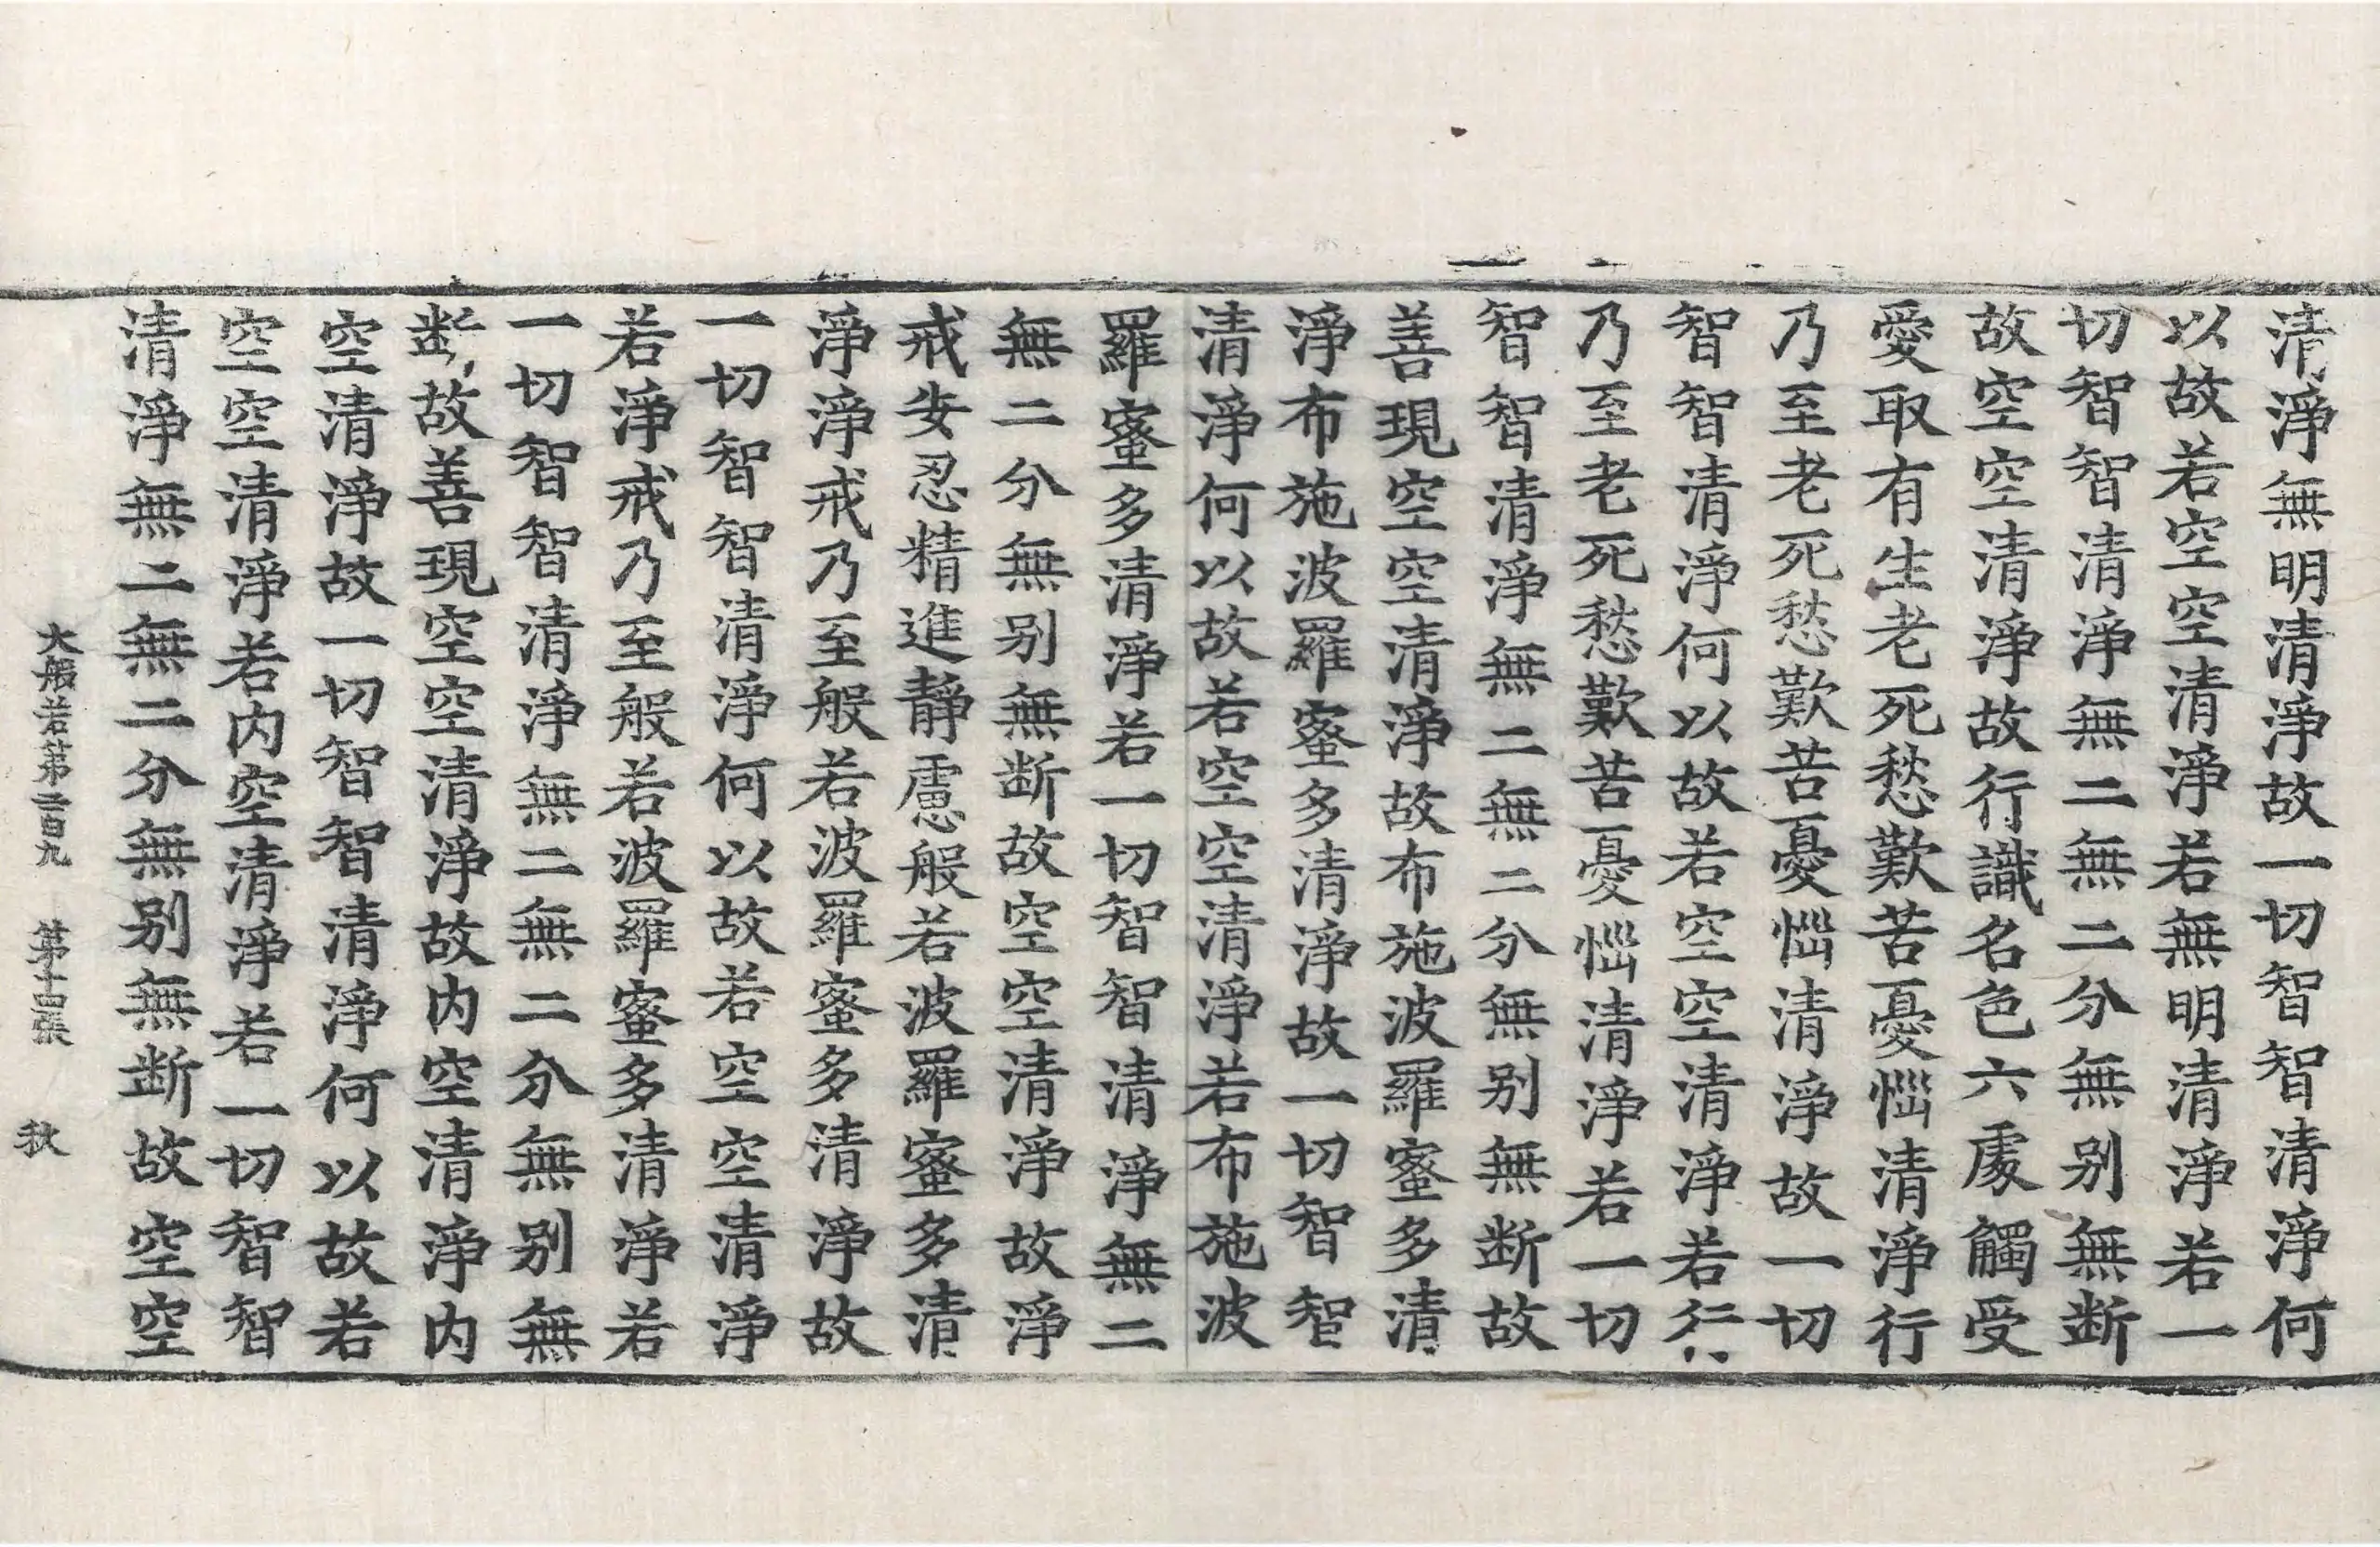 清淨無明清淨故一切智智清淨何
以故若空空清淨若無明清淨若一
切智智清淨無二無二分無别無断
故空空清淨故行識名色六處觸受
愛取有生老死愁歎苦憂惱清淨行
乃至老死愁歎苦憂惱清淨故一切
智智清淨何以故若空空清淨若行
乃至老死愁歎苦憂惱清淨若一切
智智清淨無二無二分無别無断故
善現空空清淨故布施波羅蜜多清
淨布施波羅蜜多清淨故一切智智
清淨何以故若空空清淨若布施波
羅蜜多清淨若一切智智清淨無二
無二分無别無断故空空清淨故淨
戒安忍精進靜慮般若波羅蜜多清
淨淨戒乃至般若波羅蜜多清淨故
一切智智清淨何以故若空空清淨
若淨戒乃至般若波羅蜜多清淨若
一切智智清淨無二無二分無别無
断故善現空空清淨故内空清淨内
空清淨故一切智智清淨何以故若
空空清淨若内空清淨若一切智智
清淨無二無二分無别無断故空空
大般若第二百九 第十四張 秋